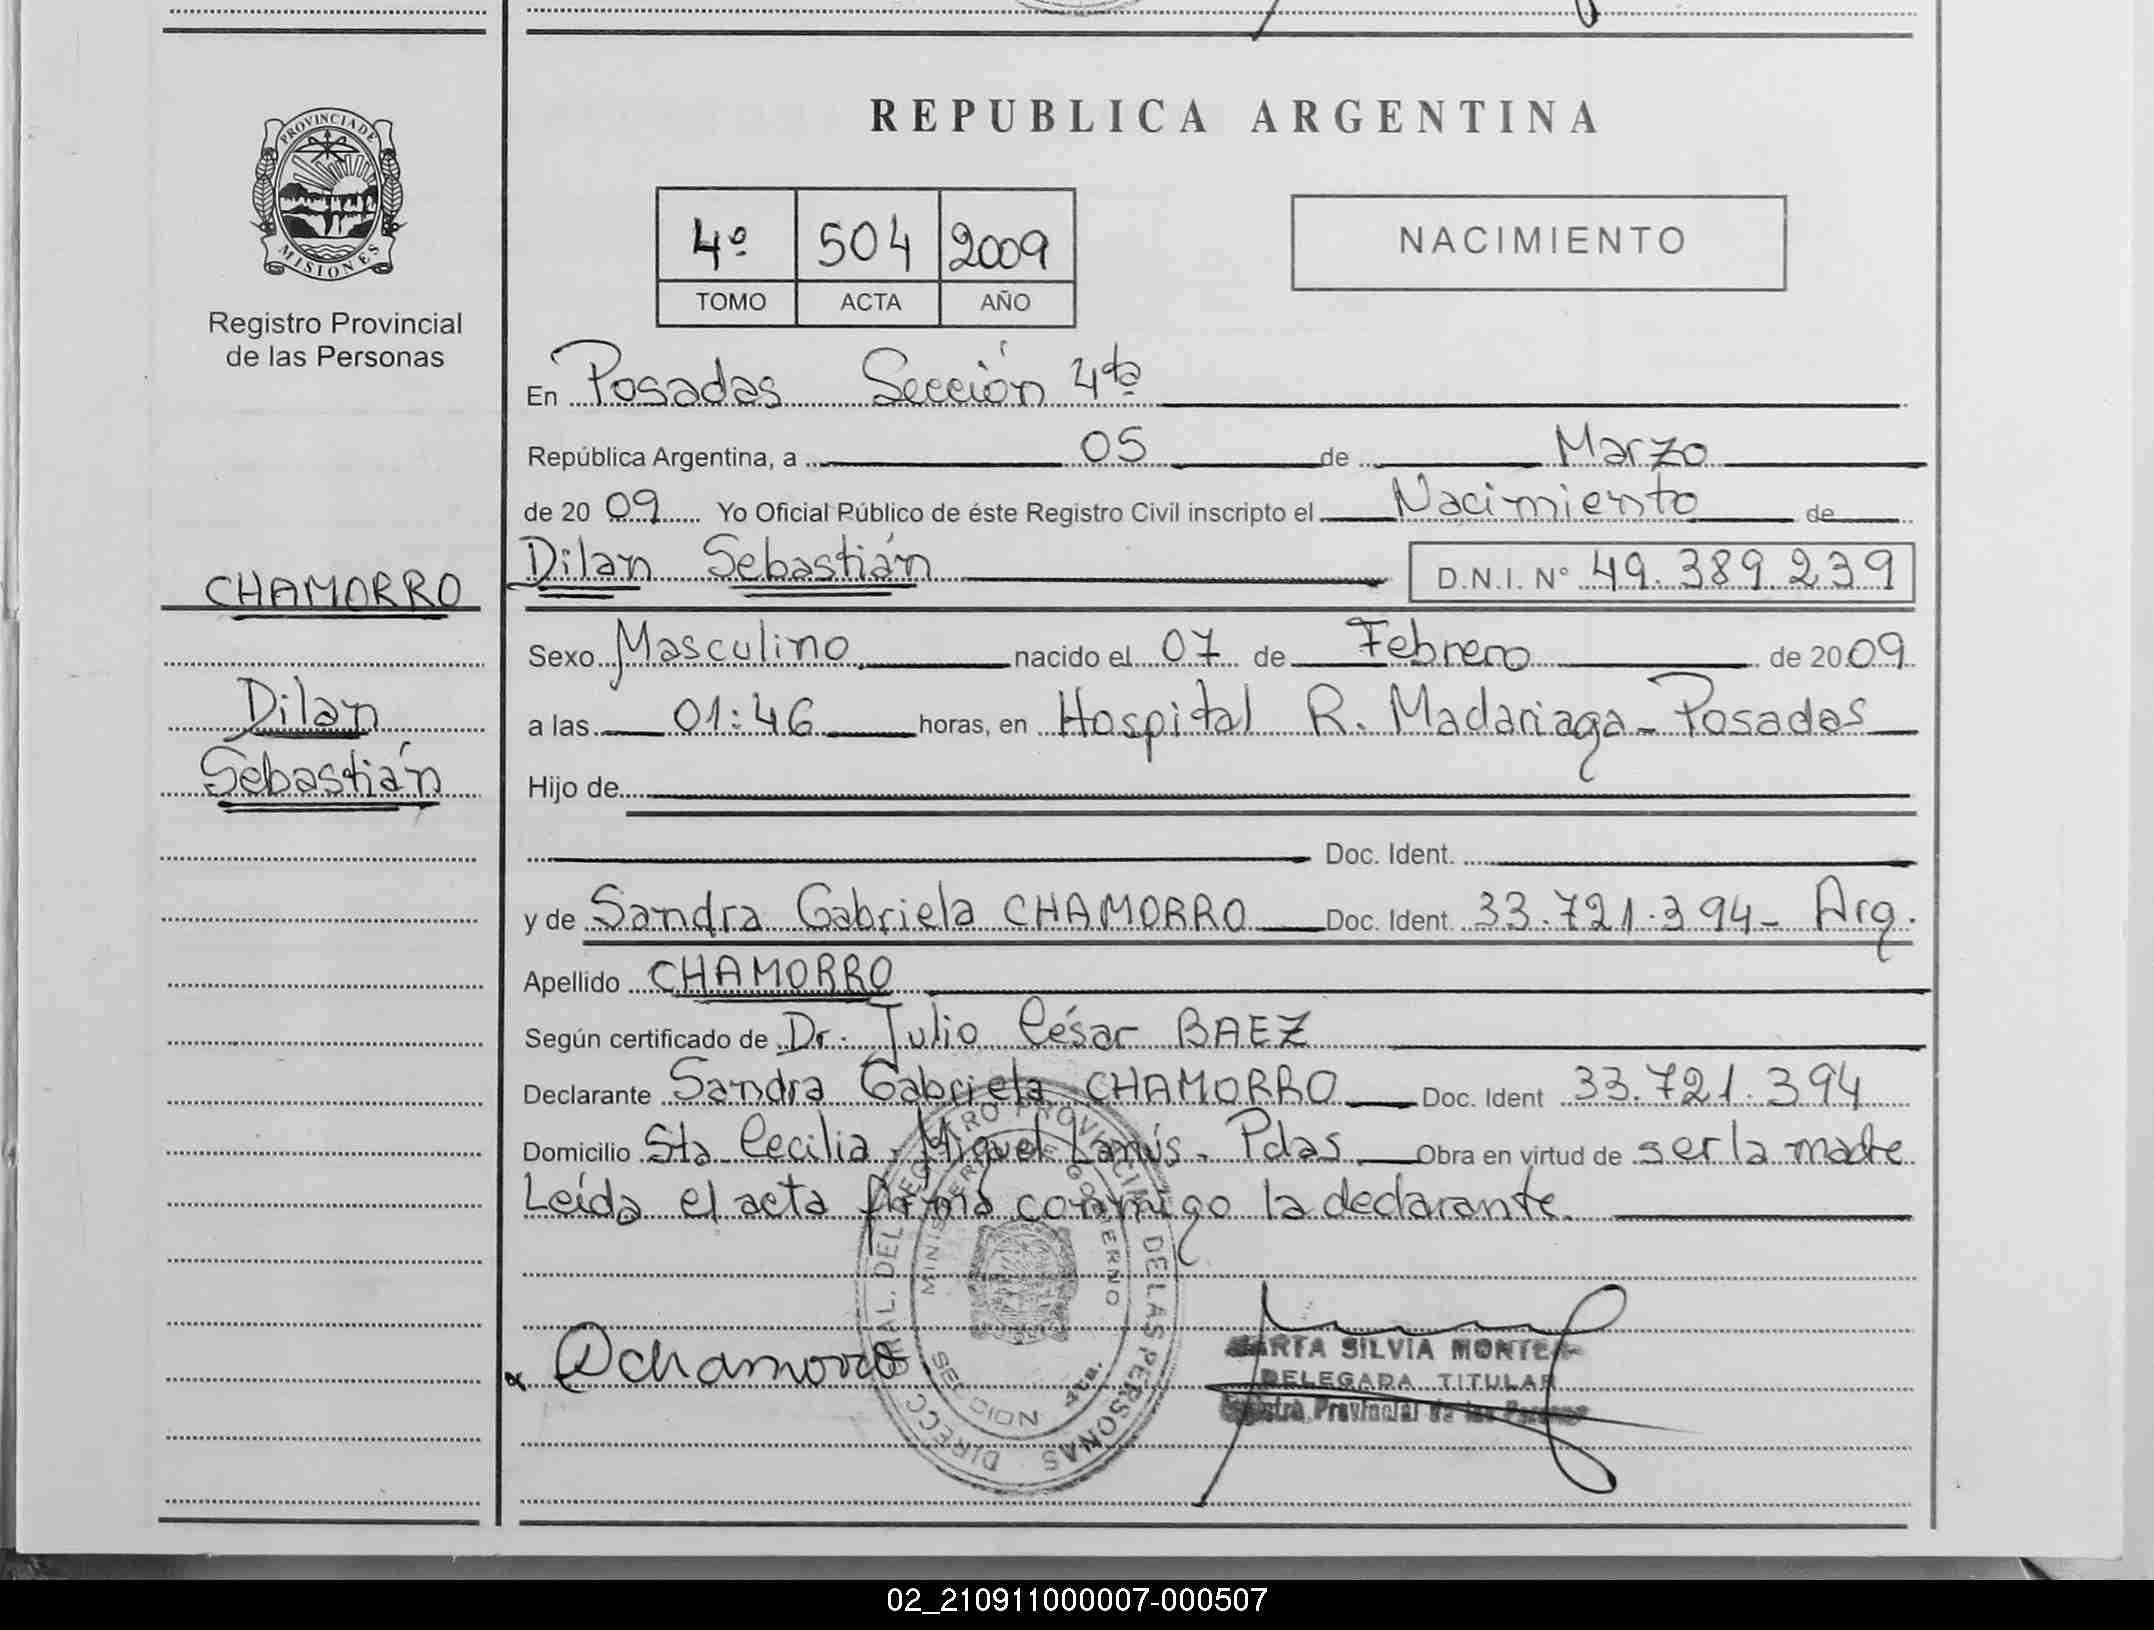 REPUBLICA ARGENTINA
PROVINCIA DE
MISIONES
Registro Provincial
de las Personas
4º 504 2009
TOMO ACTA AÑO
NACIMIENTO
En Posadas Sección 4ta
República Argentina, a 05 de Marzo
de 2009 Yo Oficial Público de éste Registro Civil inscripto el Nacimiento de
CHAMORRO
Dilan Sebastián D.N.I. Nº 49.389.239
Sexo Masculino nacido el 07 de Febrero de 2009
Dilan
a las 01:46 horas, en Hospital R. Madariaga - Posadas
Sebastián
Hijo de
Doc. Ident.
y de Sandra Gabriela CHAMORRO Doc. Ident. 33.721.394- Arg.
Apellido CHAMORRO
Según certificado de Dr. Julio César BAEZ
Declarante Sandra Gabriela CHAMORRO Doc. Ident 33.721.394
Domicilio Sta Cecilia, Miguel Lanús. Pdas. Obra en virtud de ser la madre
Leída el acta firma conmigo la declarante.
DIRECC. GRAL. DEL REGISTRO PROVINCIAL DE LAS PERSONAS
MINISTERIO DE GOBIERNO
SECCION 4ta.
chamorro
MARTA SILVIA
DELEGADA TITULAR
Registro Provincial de las Personas
02_210911000007-000507